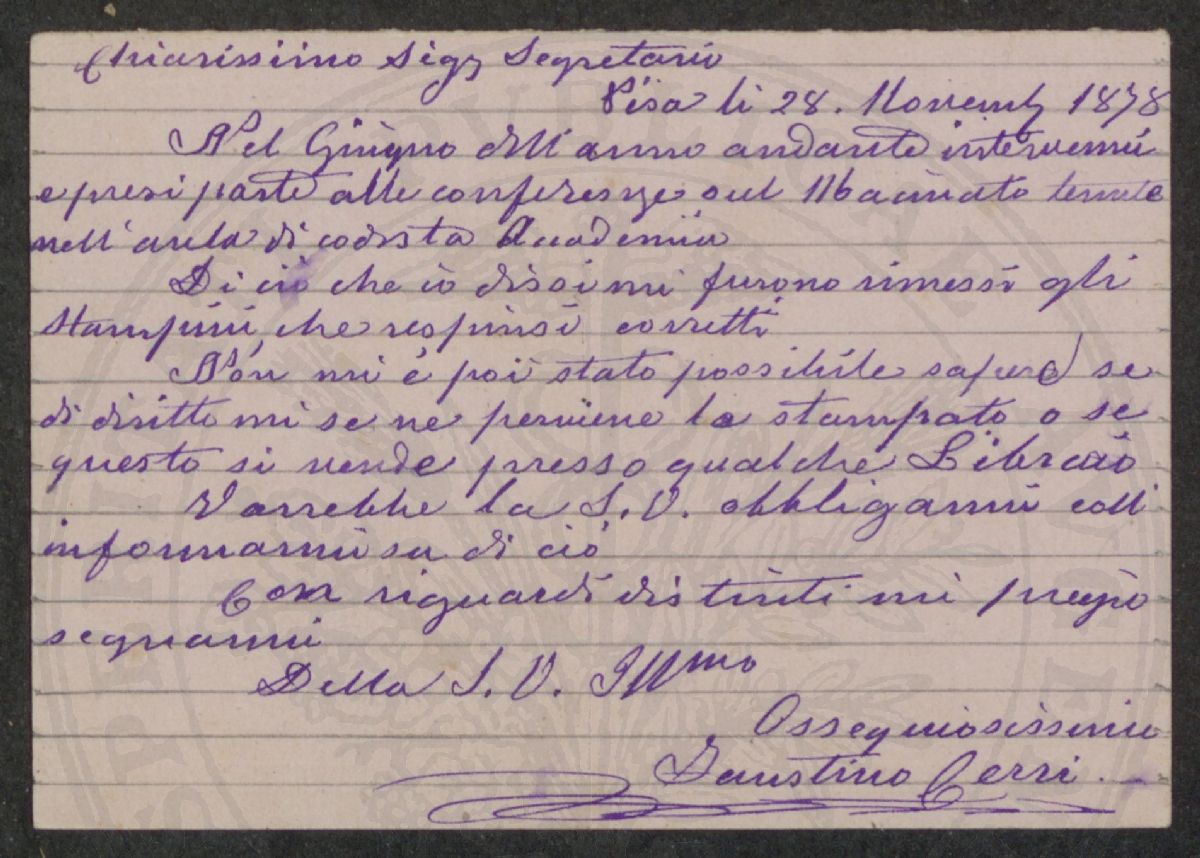 Chiarissimo Sigr Segretario
Pisa li 28. Novemb 1878
Nel Giugno dell'anno andante intervenni
e presi parte alle conferenze sul Macinato tenute
nell'aula di codesta Accademia
Di ciò che io dissi mi furono rimessi gli
stampini, che respinsi corretti
Non mi è poi stato possibile sapere se
di diritto mi se ne perviene lo stampato o se
questo si vende presso qualche Libraio
Varrebbe la S. V. obbligarmi coll
informarmi su di ciò
Con riguardi distinti mi pregio
segnarmi
Della S. V. Illmo
Ossequiosissimo
Faustino Cerri.